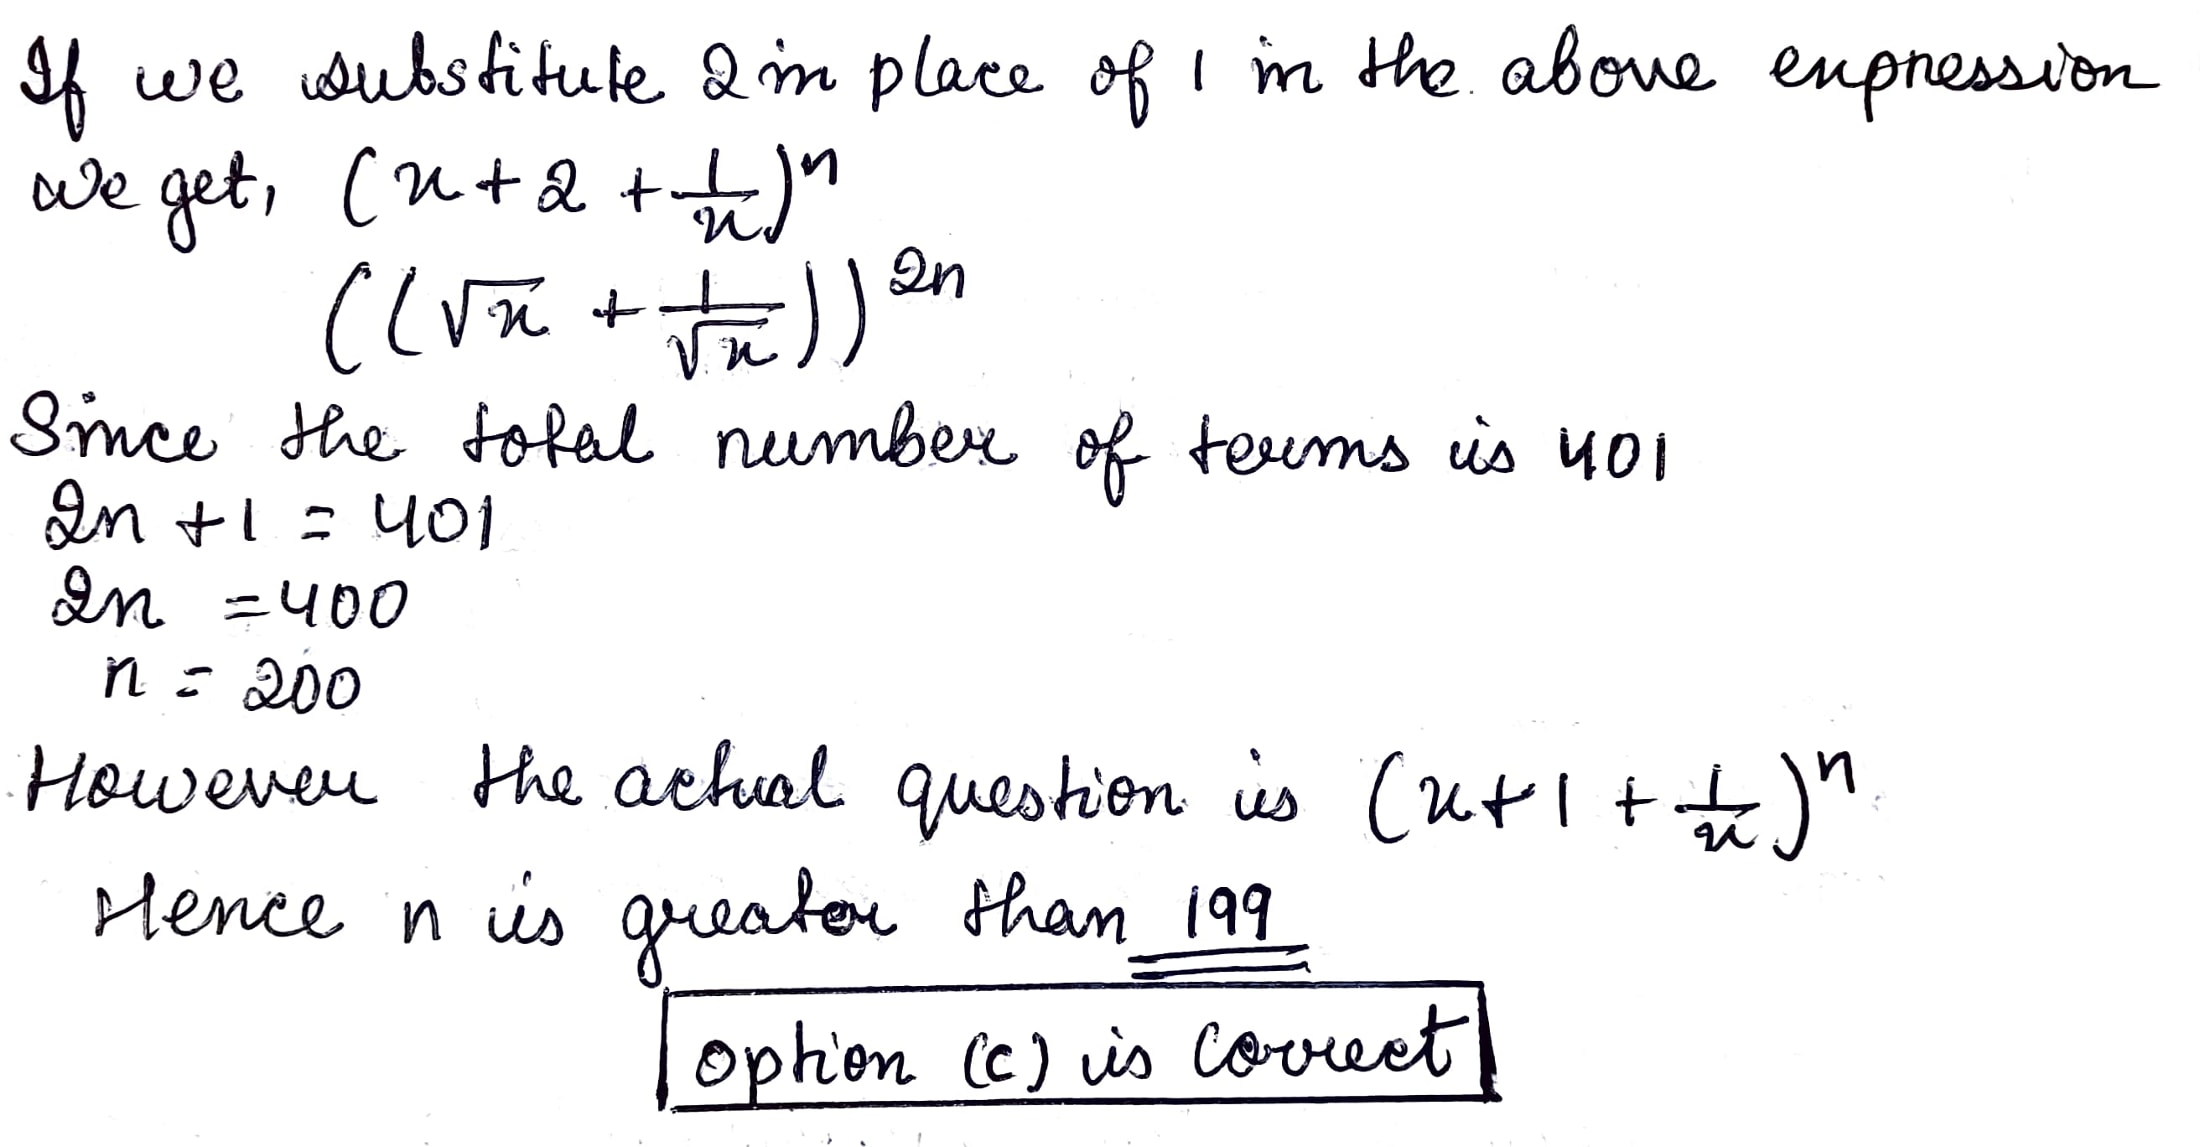 If we substitute 2 in place of 1 in the above expression
we get, (x + 2 + 1/x)^n
((√x + 1/√x))^2n
Since the total number of terms is 401
2n + 1 = 401
2n = 400
n = 200
However the actual question is (x + 1 + 1/x)^n
Hence n is greater than 199
option (c) is correct